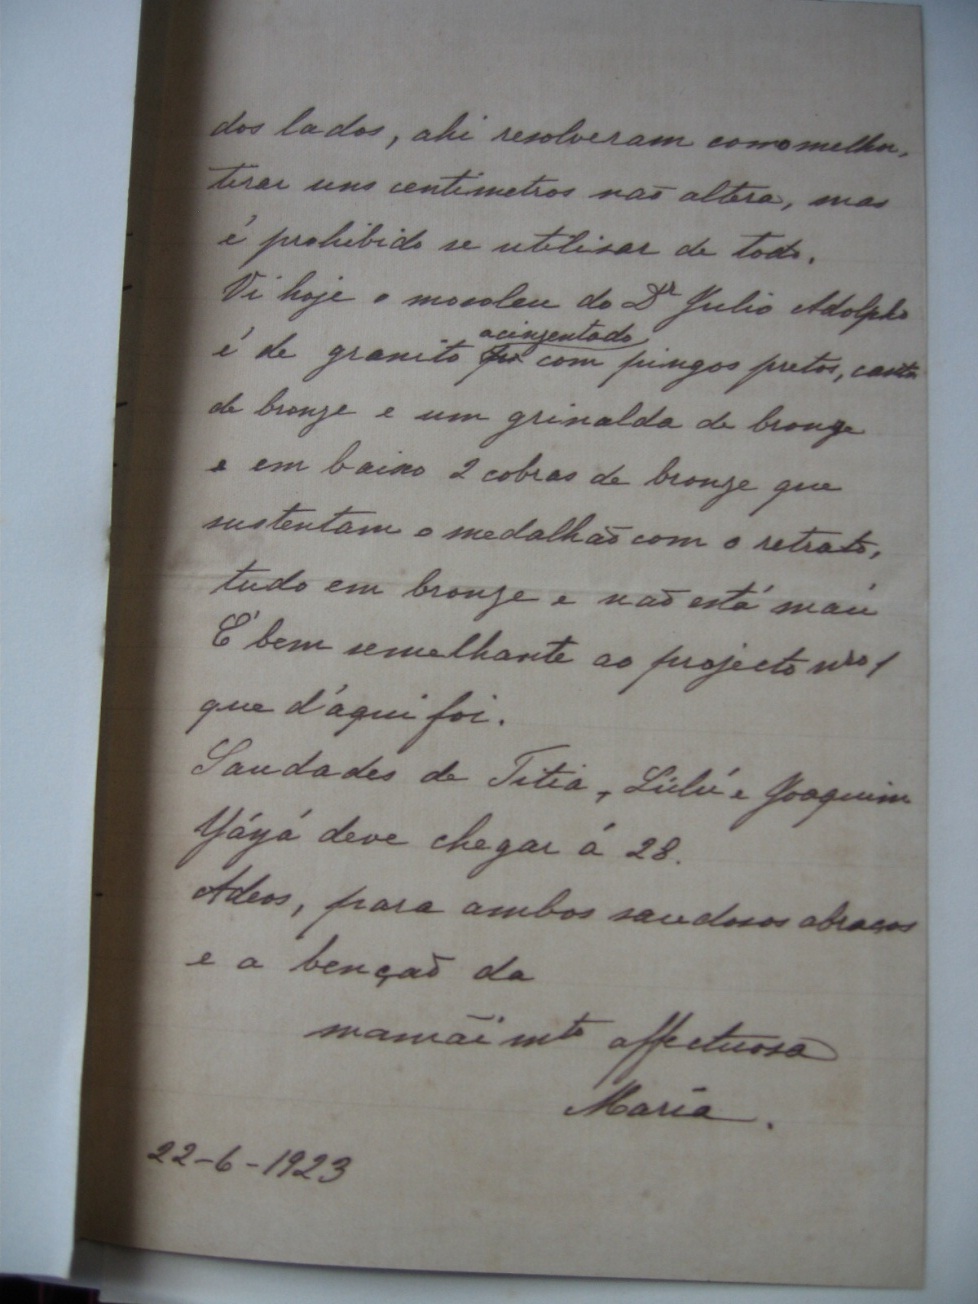 dos lados, ahi resolveram como melhor,
tirar uns centimetros não altera, mas
é prohibido se utilisar de todo.
Vi hoje o mosoleu do Dr Julio Adolpho
é de granito acinzentado com pingos pretos,
de bronze e um grinalda de bronze
e em baixo 2 cobras de bronze que
sustentam o medalhão com o retrato,
tudo em bronze e não está máu
É bem semelhante ao projecto nro 1
que d'áqui foi.
Saudades de Titia, Lúlú e Joaquim
Yáyá deve chegar á 28.
Adeos, para ambos saudosos abraços
e a benção da
mamãi mto affectuosa
Maria.
22-6-1923